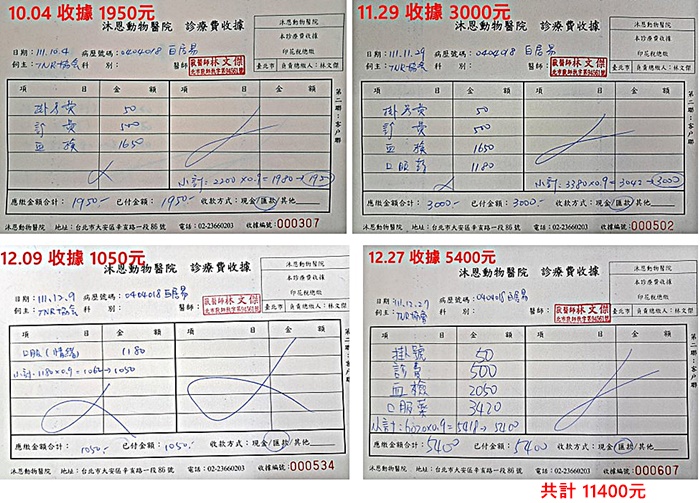 10.04 收據 1950元
沐恩動物醫院 診療費收據
沐恩動物醫院
本診療費收據
印花稅總繳
臺北市 負責總繳人：林文傑
日期：111.10.4 病歷號碼：0404018 白居易
飼主：TNR協會 科別： 醫師：
獸醫師林文傑
項目 金額 項目 金額
掛号費 50
診費 500
血檢 1650
小計：2200x0.9=1980→1950
應繳金額合計：1950- 已付金額：1950- 收款方式：現金/匯款/其他
沐恩動物醫院 地址：台北市大安區辛亥路一段86號 電話：02-23660203 收據編號：000307
第二聯：客戶聯
11.29 收據 3000元
沐恩動物醫院 診療費收據
沐恩動物醫院
本診療費收據
印花稅總繳
臺北市 負責總繳人：林文傑
日期：111.11.29 病歷號碼：0404018 白居易
飼主：TNR協會 科別： 醫師：
獸醫師林文傑
項目 金額 項目 金額
掛号費 50
診費 500
血檢 1650
口服葯 1180
小計：3380x0.9=3042→3000
應繳金額合計：3000- 已付金額：3000- 收款方式：現金/匯款/其他
沐恩動物醫院 地址：台北市大安區辛亥路一段86號 電話：02-23660203 收據編號：000502
第二聯：客戶聯
12.09 收據 1050元
沐恩動物醫院 診療費收據
沐恩動物醫院
本診療費收據
印花稅總繳
臺北市 負責總繳人：林文傑
日期：111.12.9 病歷號碼：0404018 白居易
飼主：TNR協會 科別： 醫師：
獸醫師林文傑
項目 金額 項目 金額
口服 1180
小計：1180x0.9=1062→1050
應繳金額合計：1050- 已付金額：1050- 收款方式：現金/匯款/其他
沐恩動物醫院 地址：台北市大安區辛亥路一段86號 電話：02-23660203 收據編號：000534
第二聯：客戶聯
12.27 收據 5400元
沐恩動物醫院 診療費收據
沐恩動物醫院
本診療費收據
印花稅總繳
臺北市 負責總繳人：林文傑
日期：111.12.27 病歷號碼：0404018 白居易
飼主：TNR協會 科別： 醫師：
獸醫師林文傑
項目 金額 項目 金額
掛號 50
診費 500
血檢 2050
口服藥 3420
小計：6020x0.9=5418→5400
應繳金額合計：5400 已付金額：5400 收款方式：現金/匯款/其他
沐恩動物醫院 地址：台北市大安區辛亥路一段86號 電話：02-23660203 收據編號：000607
第二聯：客戶聯
共計 11400元